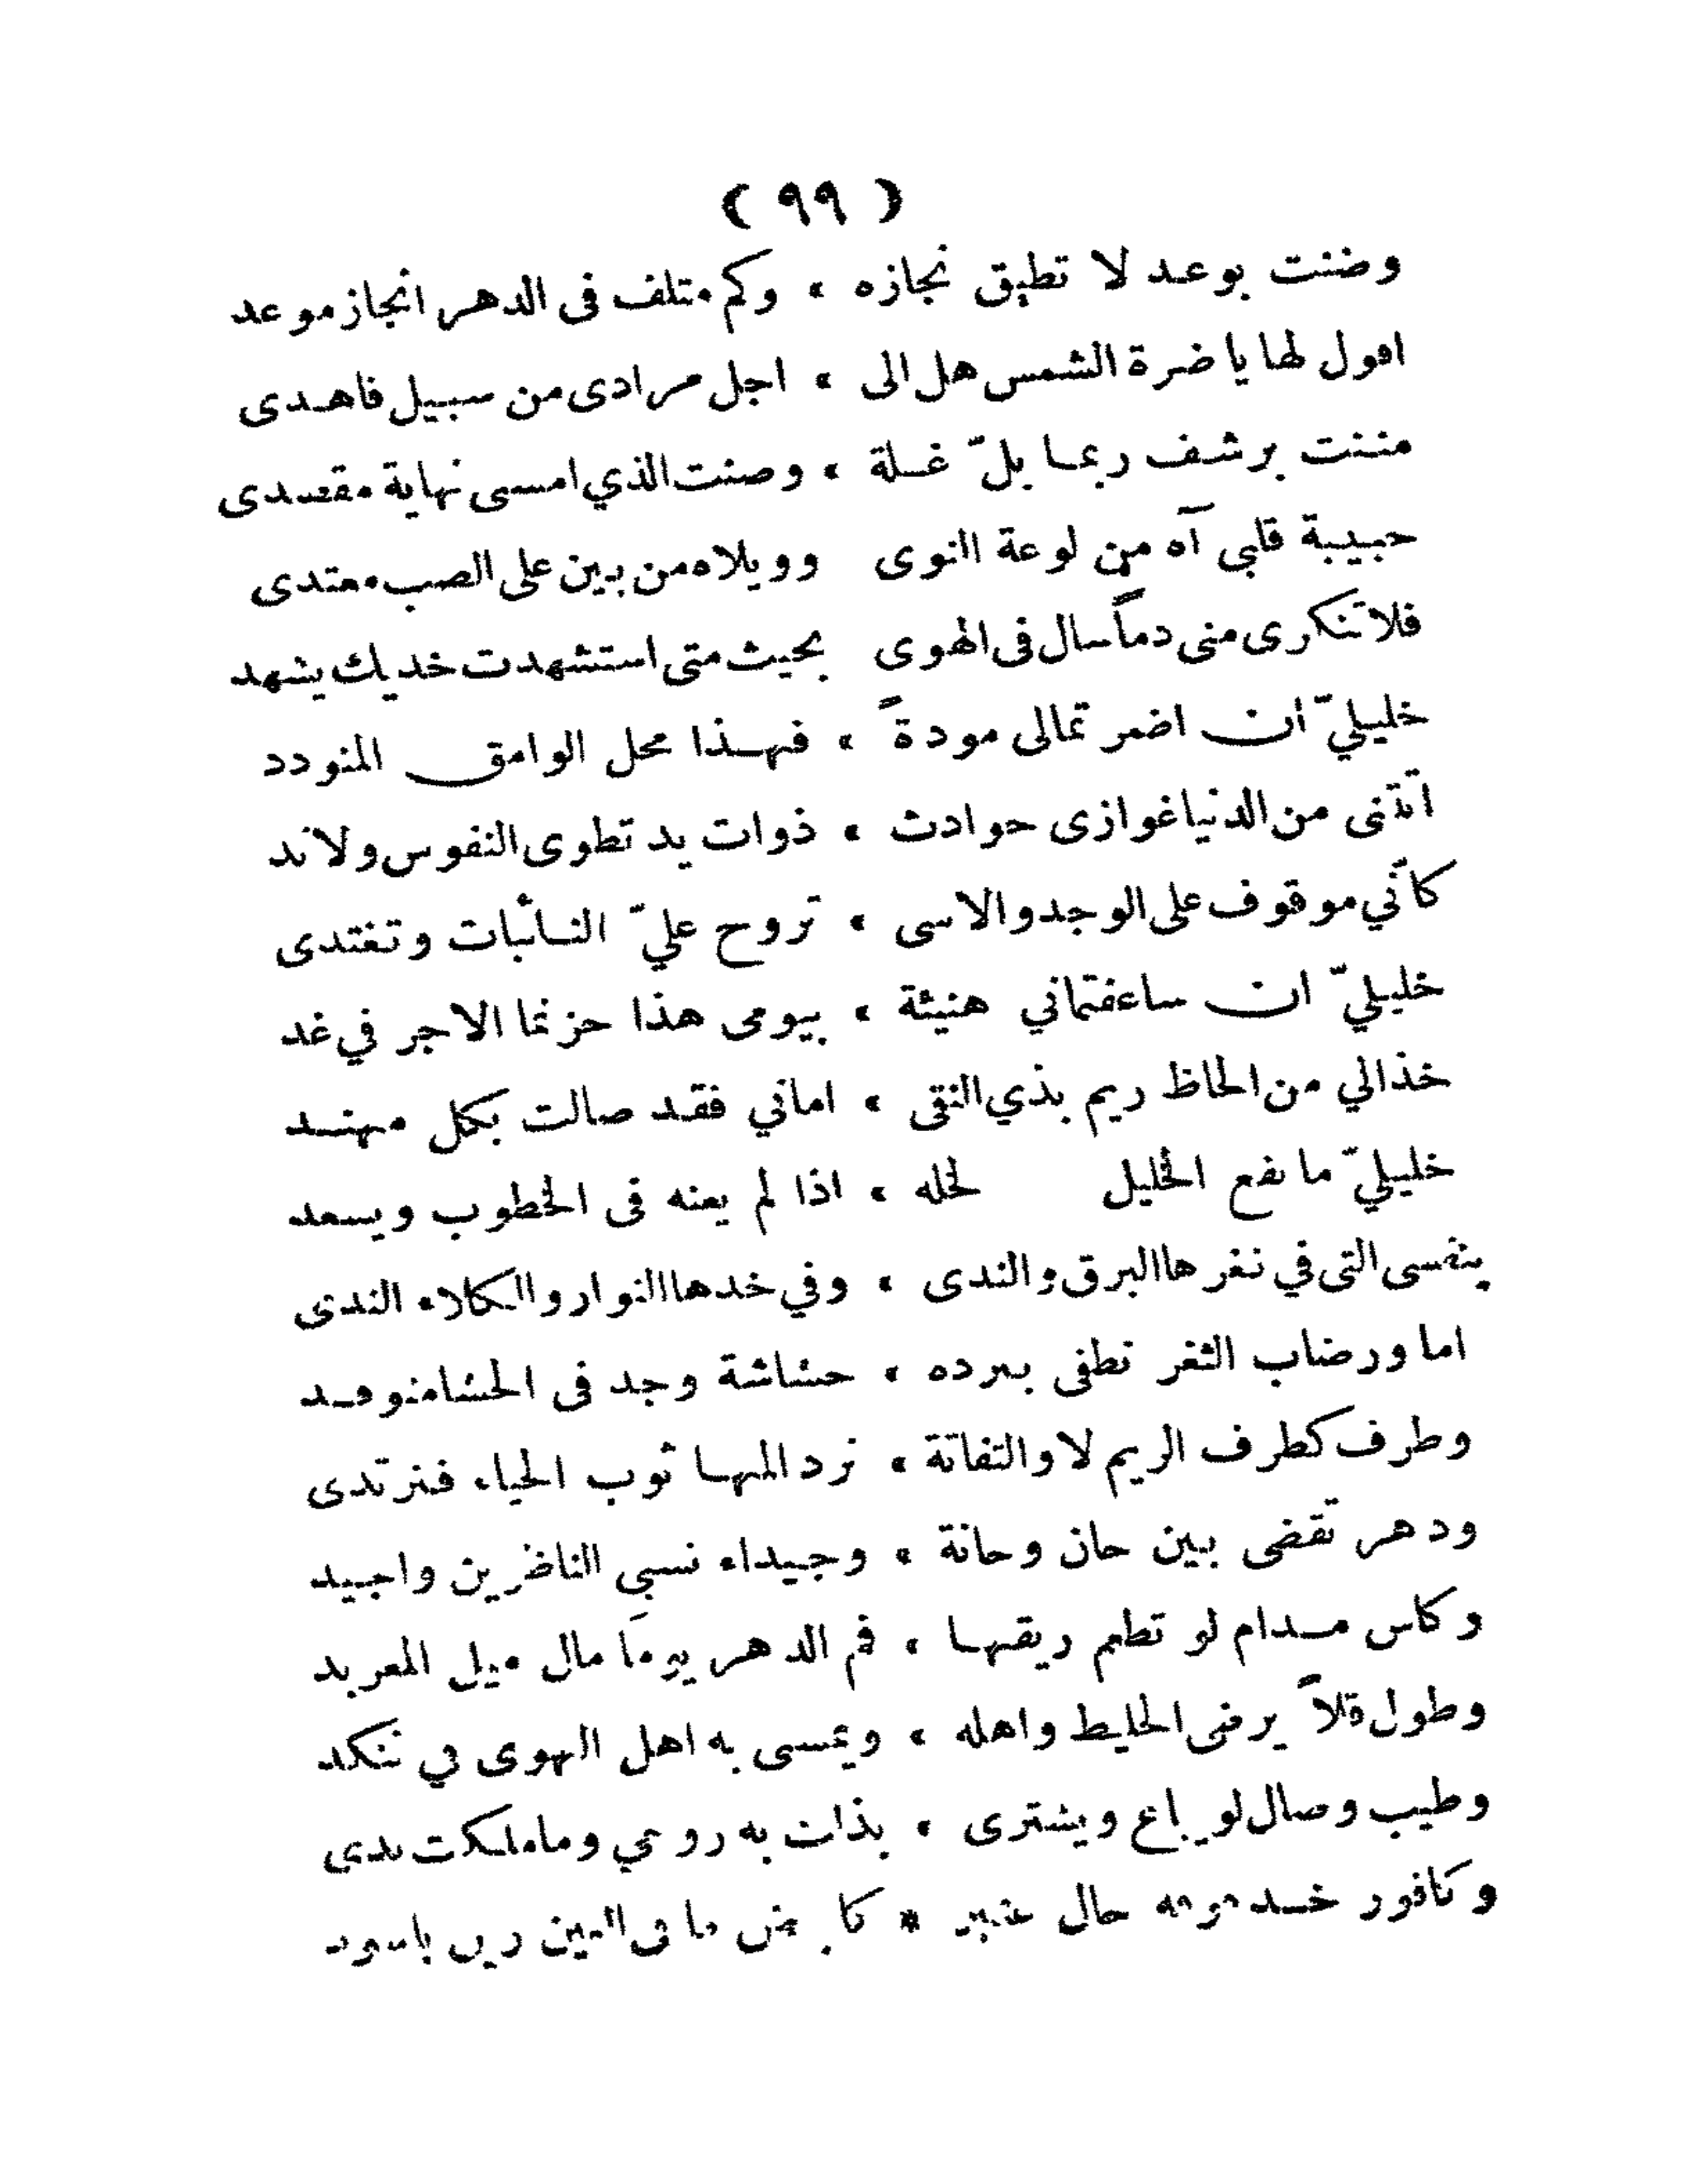 ( ٩٩ )
وضنت بوعد لا تطيق نجازه ، وكم متلف فى الدهر انجاز موعد
اقول لها يا ضرة الشمس هل الى ، اجل مرادى من سبيل فاهدى
مننت برشف ربما بلّ غلة ، وصنت الذي امسى نهاية مقصدى
حبيبة قلبى آه من لوعة النوى وويلاه من بين على الصب معتدى
فلا تنكرى منى دماً سال فى الهوى بحيث متى استشهدت خديك يشهد
خليليّ ان اضمر تمالى مودةً ، فهذا محل الوامق المتودد
اتتنى من الدنيا غوازى حوادث ، ذوات يد تطوى النفوس ولا تد
كأني موقوف على الوجد والاسى ، تروح عليّ النائبات وتغتدى
خليليّ ان ساعفتماني هنيئة ، بيومى هذا حزتما الاجر في غد
خذالي من الحاظ ريم بذي النقى ، اماني فقد صالت بكل مهند
خليليّ ما نفع الخليل لخله ، اذا لم يعنه فى الخطوب ويسعد
بنفسى التى في ثغرها البرق والندى ، وفي خدها النوار والكلاء الندى
اما ورضاب الثغر تطفى ببرده ، حشاشة وجد فى الحشا متوقد
وطرف كطرف الريم لا والتفاتة ، ترد المها ثوب الحياء فترتدى
ودهر تقضى بين حان وحانة ، وجيداء تسبي الناظرين واجيد
وكاس مدام لو تطعم ريقها ، فم الدهر يومًا مال ميل المعربد
وطول قلاً يرضى الخليط واهله ، ويمسى به اهل الهوى في تنكد
وطيب وصال لو يباع ويشترى ، بذلت به روحي وما ملكت يدى
وكافور خد فوقه خال عنبر * كا بيض ما فى العين باسود